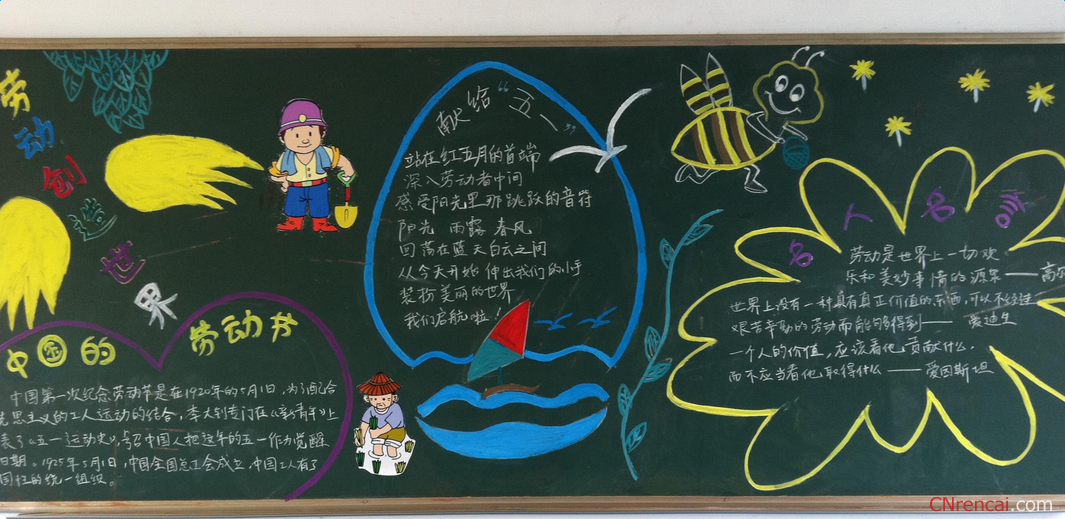 劳动创造世界
中国的
劳动节
中国第一次纪念劳动节是在1920年的5月1日,为了配合
思主义的工人运动的结合,李大钊专门在《新青年》上
表了《五一运动史》,号召中国人把这年的五一作为觉醒
日期。1925年5月1日,中国全国总工会成立,中国工人有了
的统一组织。
献给“五一”
站在红五月的首端
深入劳动者中间
感受阳光里那跳跃的音符
阳光 雨露 春风
回荡在蓝天白云之间
从今天开始 伸出我们的小手
装扮美丽的世界
我们启航啦!
名人名言
劳动是世界上一切欢
乐和美妙事情的源泉——高尔
世界上没有一种具有真正价值的东西,可以不经过
艰苦辛勤的劳动而能够得到——爱迪生
一个人的价值,应该看他贡献什么,
而不应当看他取得什么——爱因斯坦
CNrencai.com